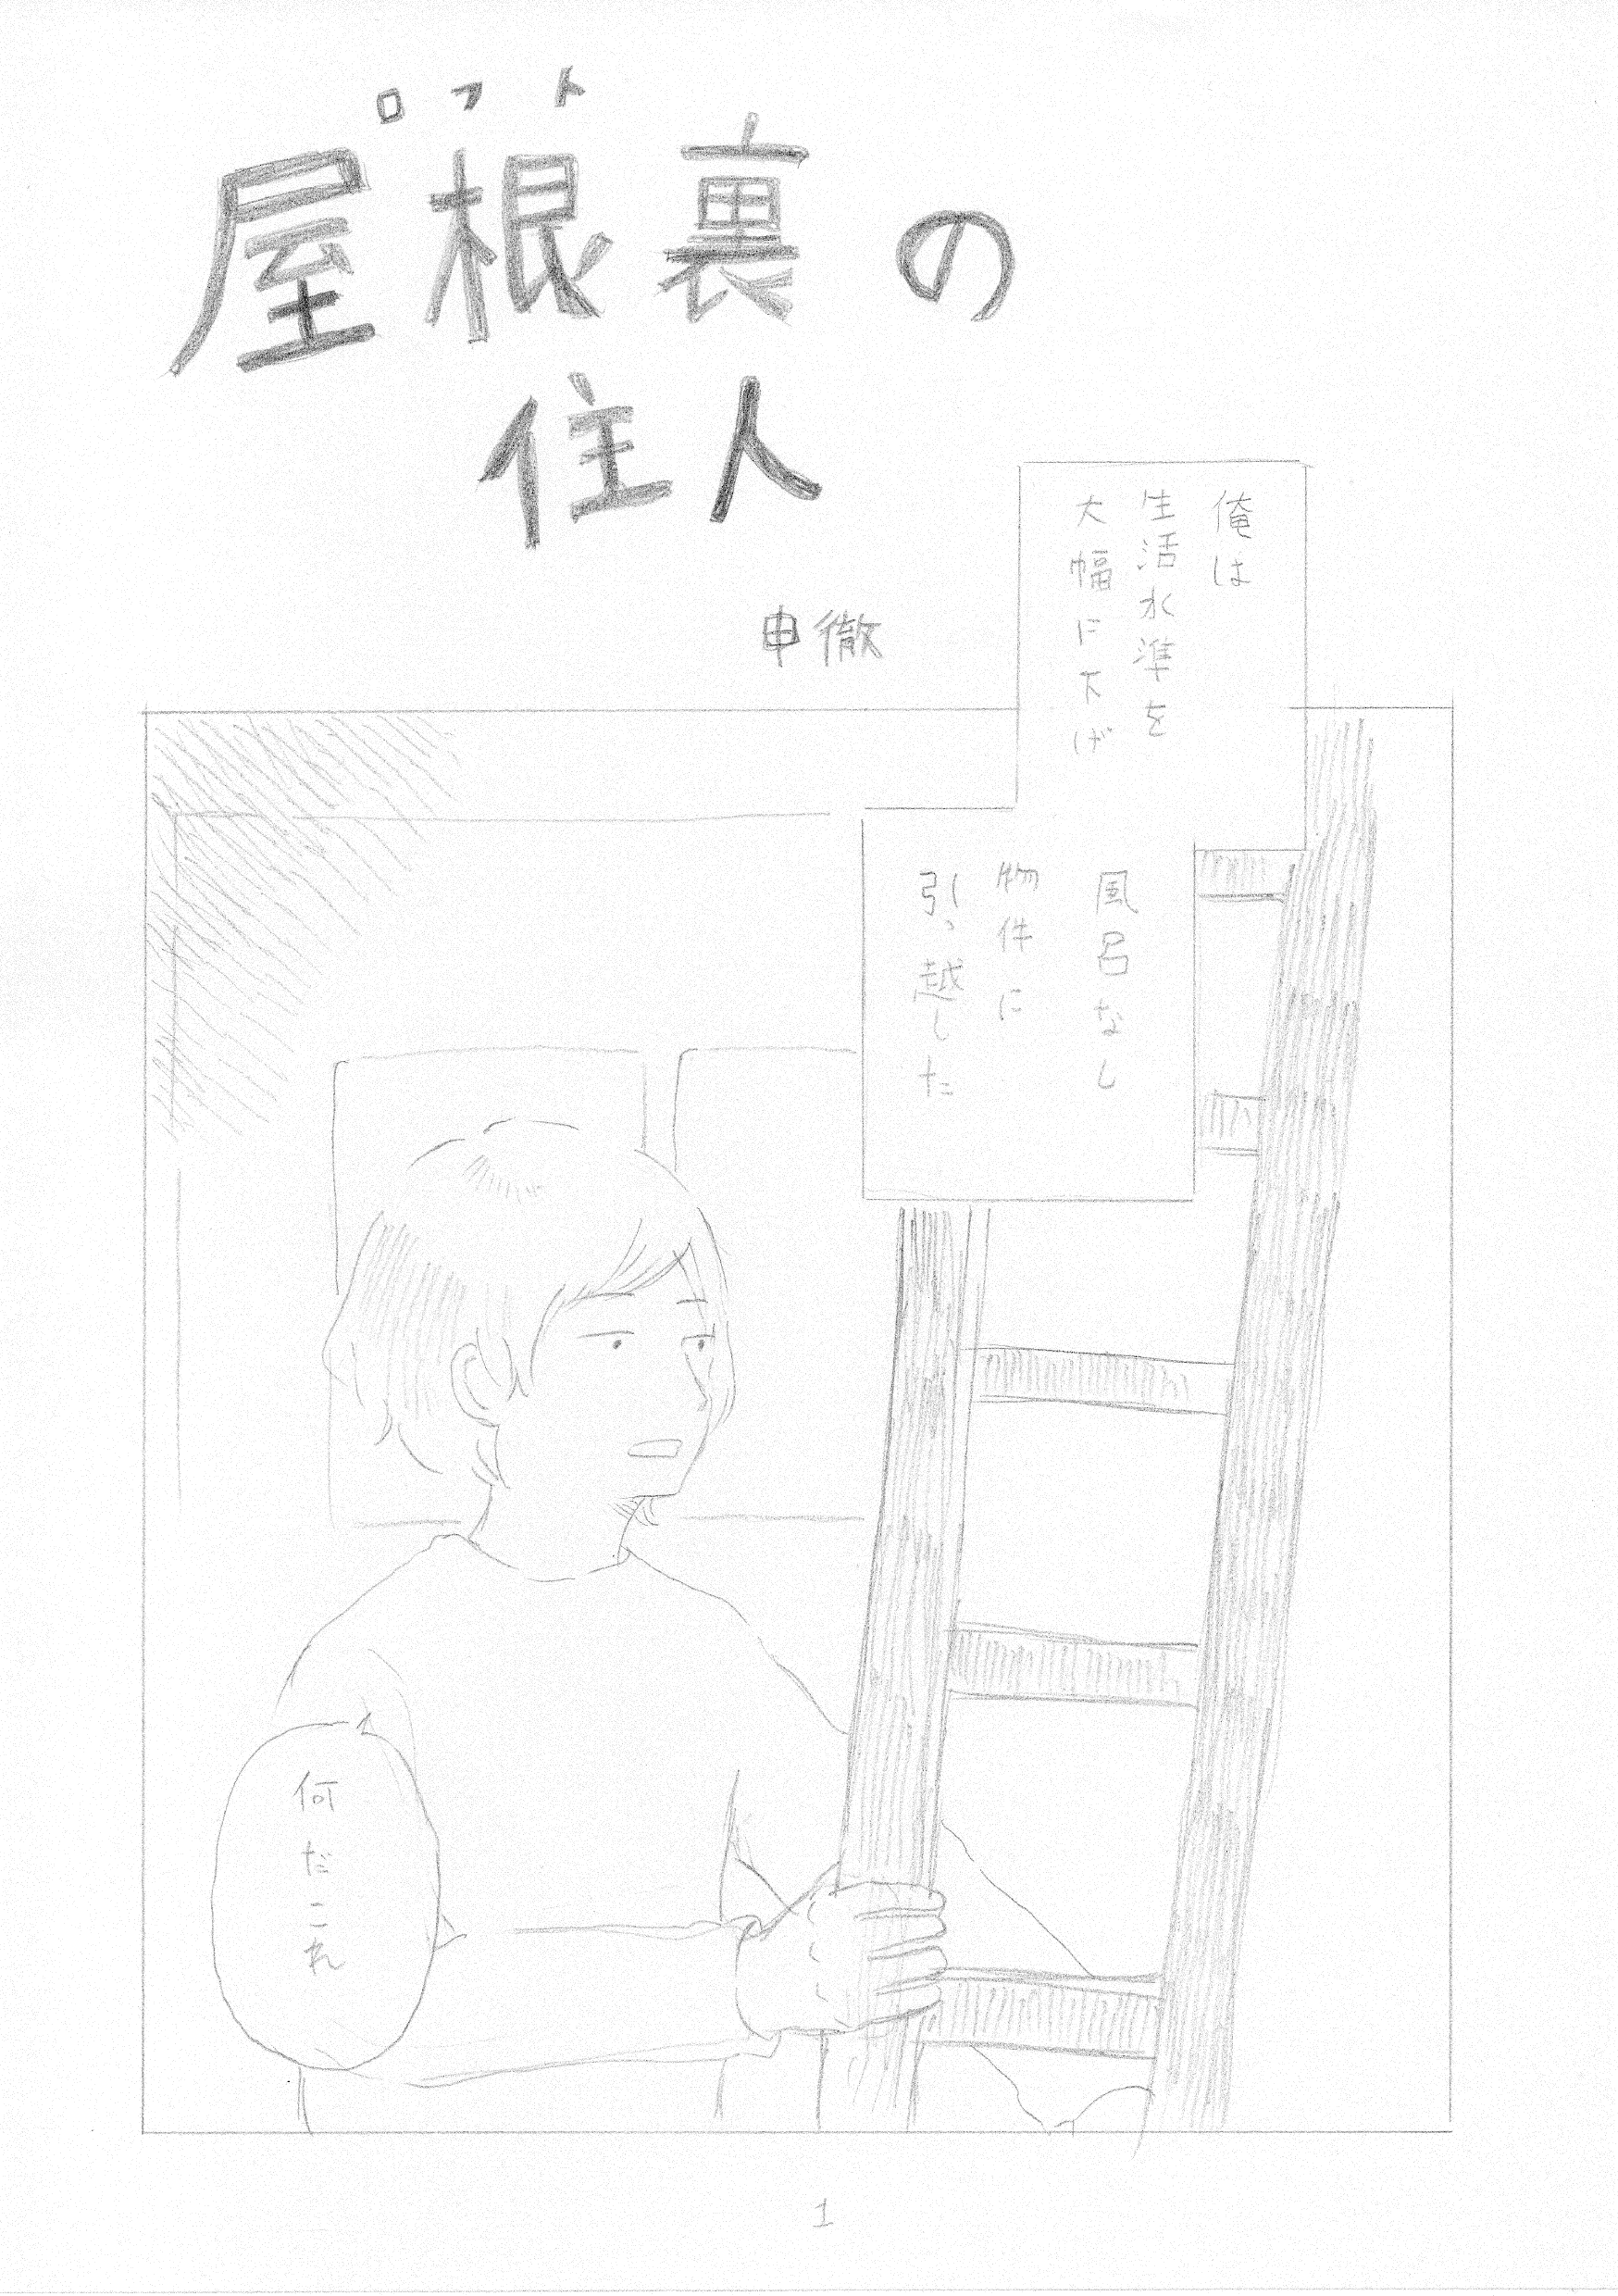 ロフト
屋根裏の
住人
申徹
俺は
生活水準を
大幅に下げ
風呂なし
物件に
引っ越した
何だこれ
1